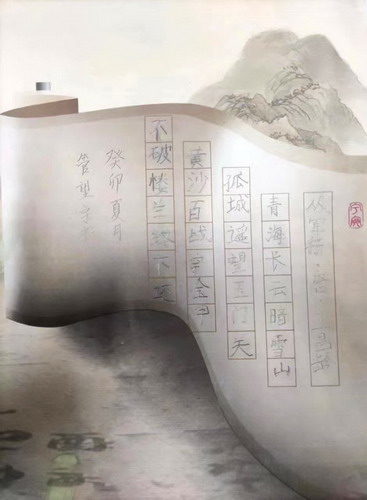 从军行·唐·
青海长云暗雪山
孤城遥望玉门
黄沙百战穿金甲
不破楼兰终不还
癸卯夏月
管望